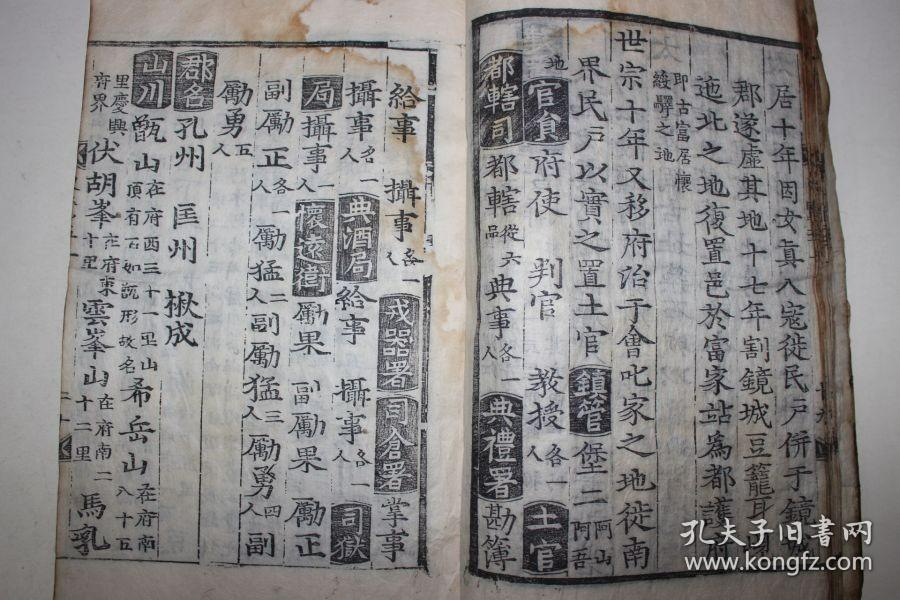 居十年因女真入寇徙民戶併于鏡城
郡遂虛其地十七年割鏡城豆籠耳
迤北之地復置邑於富家站爲都護府
即古富居懷
綏驛之地
世宗十年又移府治于會叱家之地徙南
界民戶以實之置土官 鎭管 堡二 阿山
阿吾
地 官員 府使 判官 教授 各一
人 土官
都轄司 都轄 從六
品 典事 各一
人 典禮署 勘簿
給事 攝事 各一
人 戎器署 司倉署 掌事
攝事 各一
人 典酒局 給事 攝事 各一
人 司獄
局 攝事 一
人 懷遠衛 勵果 副勵果 勵正
副勵正 各一
人 勵猛 二
人 副勵猛 三
人 勵勇 四
人 副
勵勇 五
人
郡名 孔州 匡州 楸城
山川 甑山 在府西三十一里山
頂有石如甑形故名 希岳山 在府南
八十五
里慶興
府界 伏胡峯 在府東
十里 雲峯山 在府南二
十二里 馬乳
孔夫子旧書网
www.kongfz.com